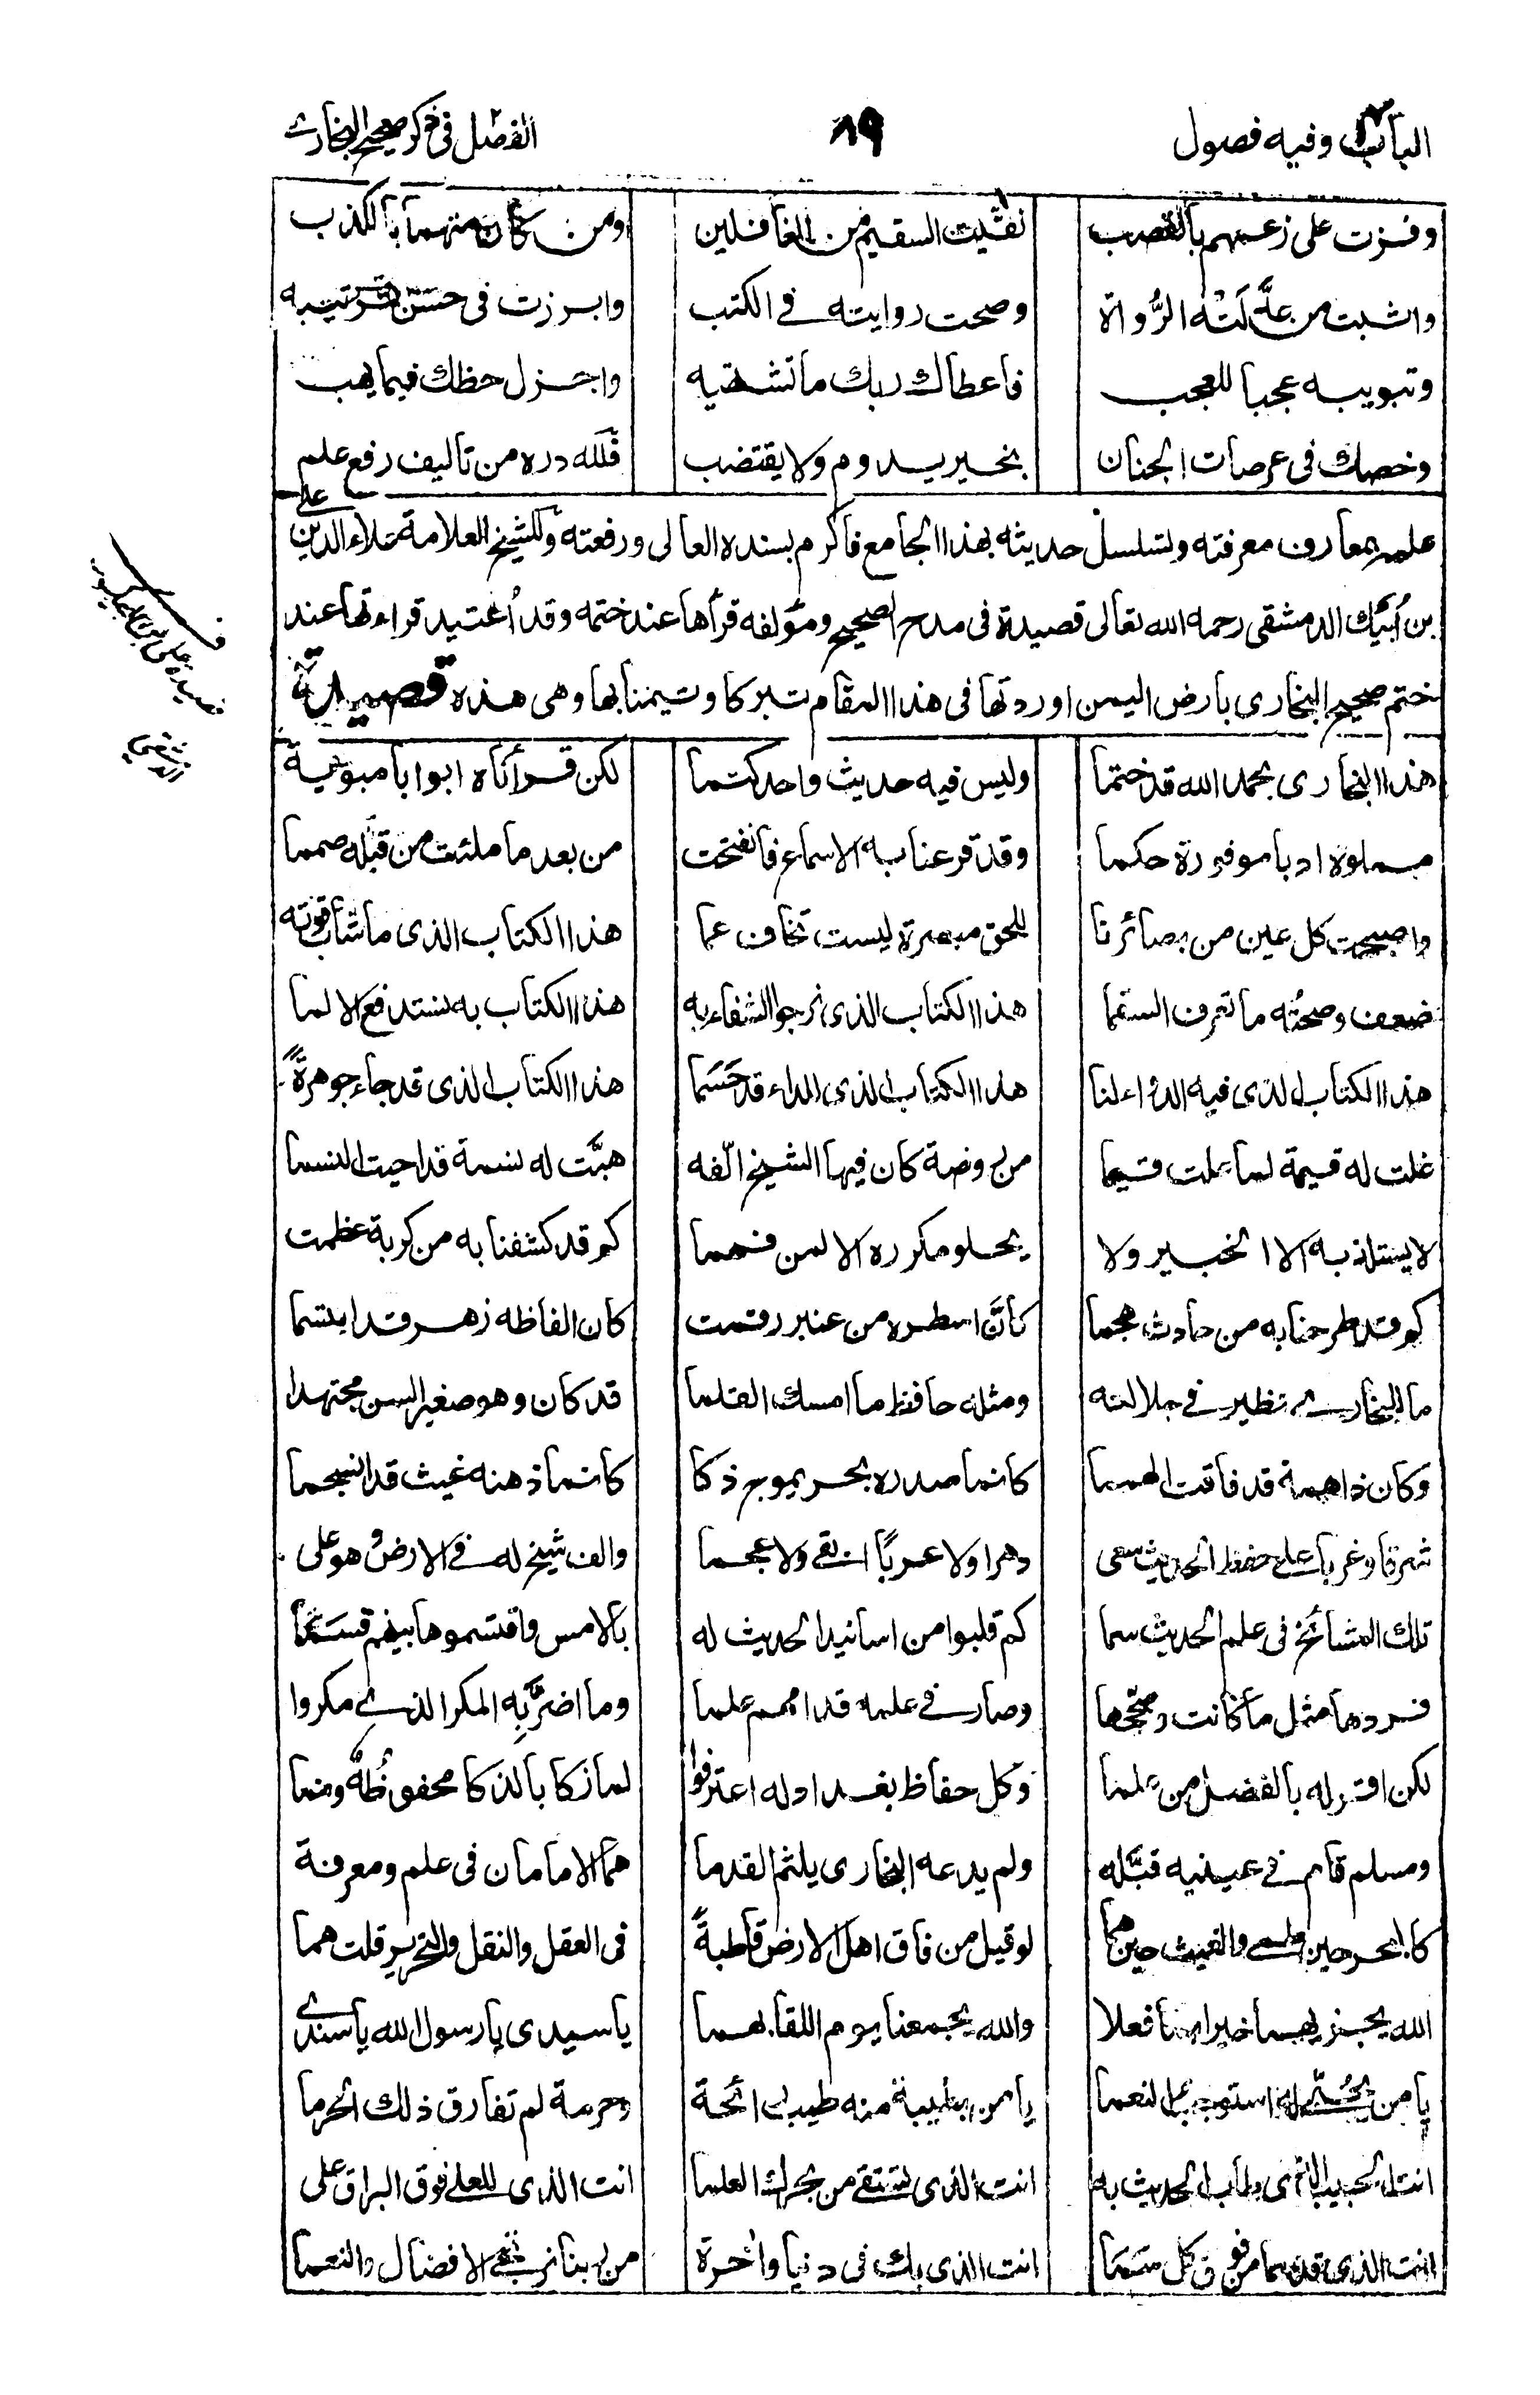 الباب وفيه فصول ٨٩ الفصل في ذكر صحيح البخاري
وفزت على زعمهم بالقصب نفيت السقيم من الغافلين ومن كان متهما بالكذب
واثبت من عدلته الرواة وصحت روايته في الكتب وابرزت في حسن ترتيبه
وتبويبه عجبا للعجب فاعطاك ربك ما تشتهيه واجزل حظك فيما يهب
وخصك في عرصات الجنان بخير يدوم ولا يقتضب فلله دره من تاليف رفع علم
علمه بمعارف معرفته وتسلسل حديثه بهذا الجامع فاكرم بسنده العالى ورفعته وللشيخ العلامة علاء الدين على
بن أيبك الدمشقى رحمه الله تعالى قصيدة فى مدح الصحيح ومؤلفه قرأها عند ختمه وقد أعتيد قراءتها عند
ختم صحيح البخارى بارض اليمن اوردتها فى هذا المقام تبركا وتيمنا بها وهى هذه قصيدة
هذا البخارى بحمد الله قد ختما وليس فيه حديث واحد كتما لكن قرأناه ابوابا مبوبة
مملوة ادبا موفورة حكما وقد قرعنا به الاسماع فانفتحت من بعد ما ملئت من قبله صمما
واصبحت كل عين من بصائرنا للحق مبصرة ليست تخاف عما هذا الكتاب الذى ما شاب قوته
ضعف وصحته ما تعرف السقما هذا الكتاب الذى نرجوا الشفاء به هذا الكتاب به نستدفع الالما
هذا الكتاب الذى فيه الدواء لنا هذا الكتاب الذى الداء قد حسما هذا الكتاب الذى قد جاء جوهرة
غلت له قيمة لما علت قيما من روضة كان فيها الشيخ الفه هبت له نسمة قد احيت النسما
لا يستلذ به الا الخبير ولا يحلو مكرره الا لمن فهما كم قد كشفنا به من كربة عظمت
كم قد طرحنا به من حادث هجما كأن اسطره من عنبر رقمت كان الفاظه زهر قد ابتسما
ما للبخارى نظير في جلالته ومثله حافظ ما امسك القلما قد كان وهو صغير السن مجتهدا
وكان ذا همة قد فاقت الهمما كانما صدره بحر يموج ذكا كانما ذهنه غيث قد انسجما
شرقا وغربا على حفظ الحديث سعى دهرا ولا عربا ابقى ولا عجما والف شيخ له في الارض وهو على
تلك المشائخ فى علم الحديث سما كم قلبوا من اسانيد الحديث له بالامس واقتسموها بينهم قسما
فردها مثل ما كانت وصححها وصار في علمه قدامهم علما وما اضر به المكر الذي مكروا
لكن اقر له بالفضل من علما وكل حفاظ بغداد له اعترفوا لما زكا بالذكا محفوظه ونما
ومسلم قام في عينيه قبله ولم يدعه البخارى يلثم القدما هما الامامان فى علم ومعرفة
كالبحر حين طمى والغيث حين هما لو قيل من فاق اهل الارض قاطبة فى العقل والنقل والتحرير قلت هما
الله يجزيهما خيرا بما فعلا والله يجمعنا يوم اللقا بهما ياسيدى يارسول الله ياسندى
يا من استوجب النعما يا من بطيبة منه طيب رائحة وحرمة لم تفارق ذلك الحرما
انت الحبيب الذى طاب الحديث به انت الذى نستقى من بحرك العلما انت الذى للعلى فوق البراق على
انت الذى قد سما من فوق كل سما انت الذى بك فى دنيا واخرة من ربنا نرتجى الافضال والنعما
الدمشقي